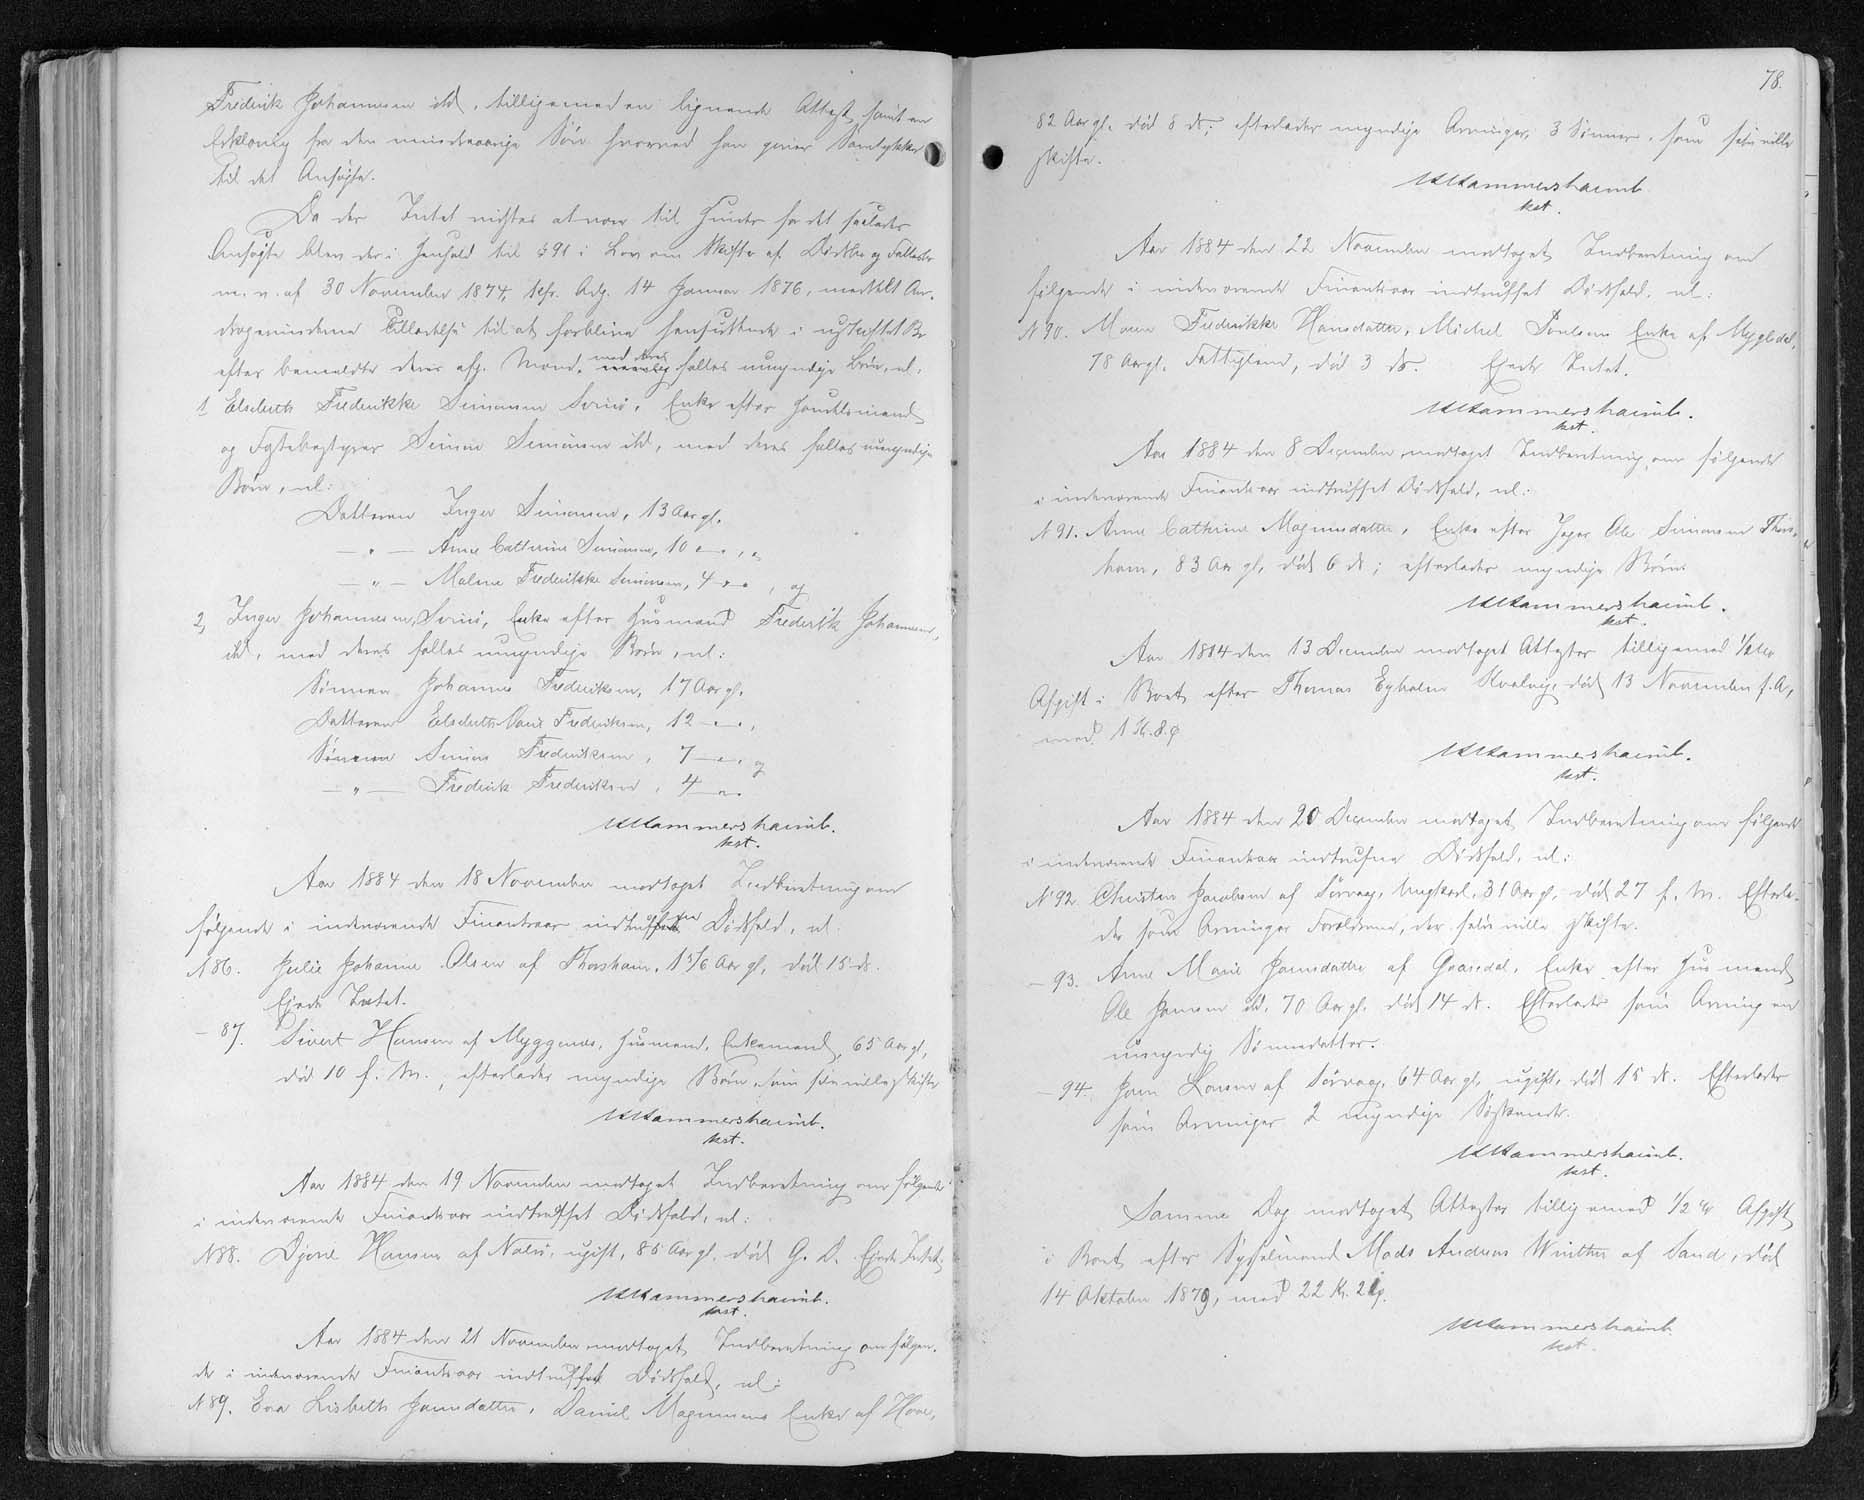 Frederik Johannesen ibd, tilligemed en lignende Attest, samt en
Erklæring fra den mindreaarige Søn hvorved han giver Samtykke
til det Ansøgte.
Da der Intet vidstes at være til Hinder for det saaledes
Ansøgte blev der i Henhold til § 91 i Lov om Skifte af Dødsbo og Fællesbo
m. v. af 30 November 1874, kfr. Adg. 14 Januar 1876, meddelt An-
dragerinderne Tilladelse til at forblive hensiddende i uskiftet Bo
efter bemeldte deres afg. Mænd, med deres fælles umyndige Børn, nl.
1 Elsebeth Frederikke Simonsen Svinø, Enke efter Handelsmand
og Fæstebestyrer Simon Simonsen ibd, med deres fælles umyndige
Børn, nl:
Datteren Inger Simonsen, 13 Aar gl.
— " — Anne Cathrine Simonsen, 10 — " — , "
— " — Malene Frederikke Simonsen, 4 " " , og
2, Inger Johannesen, Svinø, Enke efter Husmand Frederik Johannesen,
ibd, med deres fælles umyndige Børn, nl:
Sønnen Johannes Frederiksen, 17 Aar gl.
Datteren Elsebeth Marie Frederiksen, 12 — " — ,
Sønnen Simon Frederiksen, 7 — " — , og
— " — Frederik Frederiksen, 4 — " —
Hammershaimb.
kst.
Aar 1884 den 18 November modtaget Indberetning om
følgende i indeværende Finantsaar indtrufne Dødsfald, nl:
N 86. Julie Johanne Olsen af Thorshavn, 1 5/6 Aar gl, død 15 ds.
Ejede Intet.
— 87. Sivert Hansen af Myggenæs, Husmand, Enkemand, 65 Aar gl,
død 10 f. M., efterlader myndige Børn, som selv ville skifte
Hammershaimb.
kst.
Aar 1884 den 19 November modtaget Indberetning om følgende
i indeværende Finantsaar indtruffet Dødsfald, nl:
N 88. Djone Hansen af Nolsø, ugift, 85 Aar gl. død G. D. Ejede Intet.
Hammershaimb.
kst.
Aar 1884 den 21 November modtaget Indberetning om følgen-
de i indeværende Finantsaar indtruffet Dødsfald, nl:
N 89. Eva Lisbeth Joensdatter, Daniel Magnussens Enke af Hove,
78.
82 Aar gl. død 8 ds; efterlader myndige Arvinger, 3 Sønner, som selv ville
skifte.
Hammershaimb
kst.
Aar 1884 den 22 November modtaget Indberetning om
følgende i indeværende Finantsaar indtruffet Dødsfald, nl:
N 90. Maren Frederikke Hansdatter, Michel Poulsens Enke af Mygledal,
78 Aar gl. Fattiglem, død 3 ds. Ejede Intet.
Hammershaimb.
kst.
Aar 1884 den 8 December modtaget Indberetning om følgende
i indeværende Finantsaar indtruffet Dødsfald, nl:
N 91. Anne Cathrine Magnusdatter, Enke efter Jæger Ole Simonsen Thors-
havn, 83 Aar gl, død 6 ds; efterlader myndige Børn.
Hammershaimb.
kst.
Aar 1884 den 13 December modtaget Attester tilligemed 1/2 %
Afgift i Boet efter Thomas Egholm Kvalvig, død 13 November f. A.,
med 1 K. 8 Ø
Hammershaimb.
kst.
Aar 1884 den 20 December modtaget Indberetning om følgende
i indeværende Finantsaar indtrufne Dødsfald, nl:
N 92. Christen Jacobsen af Sørvaag, Ungkarl, 31 Aar gl, død 27 f. M. Efterla-
der som Arvinger Forældrene, der selv ville skifte.
— 93. Anne Marie Joensdatter af Gaasedal, Enke efter Husmand
Ole Joensen ibd, 70 Aar gl. død 14 ds. Efterlader som Arving en
umyndig Sønnedatter.
— 94. Joen Larsen af Sørvaag, 64 Aar gl, ugift, død 15 ds. Efterlader
som Arvinger 2 myndige Søskende.
Hammershaimb.
kst.
Samme Dag modtaget Attester tilligemed 1/2 % Afgift
i Boet efter Sysselmand Mads Andreas Winther af Sand, død
14 Oktober 1879, med 22 Kr. 21 Ø.
Hammershaimb
kst.